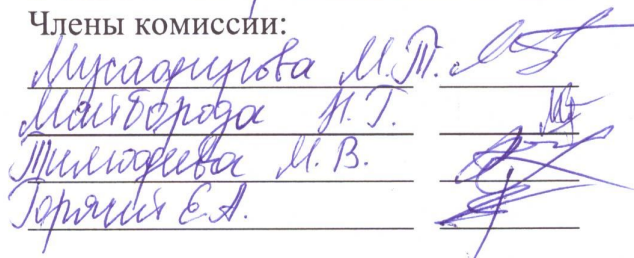 Члены комиссии:
Мусафирова М.Т.
Майборода Н.Г.
Тимофеева М.В.
Горячий Е.А.